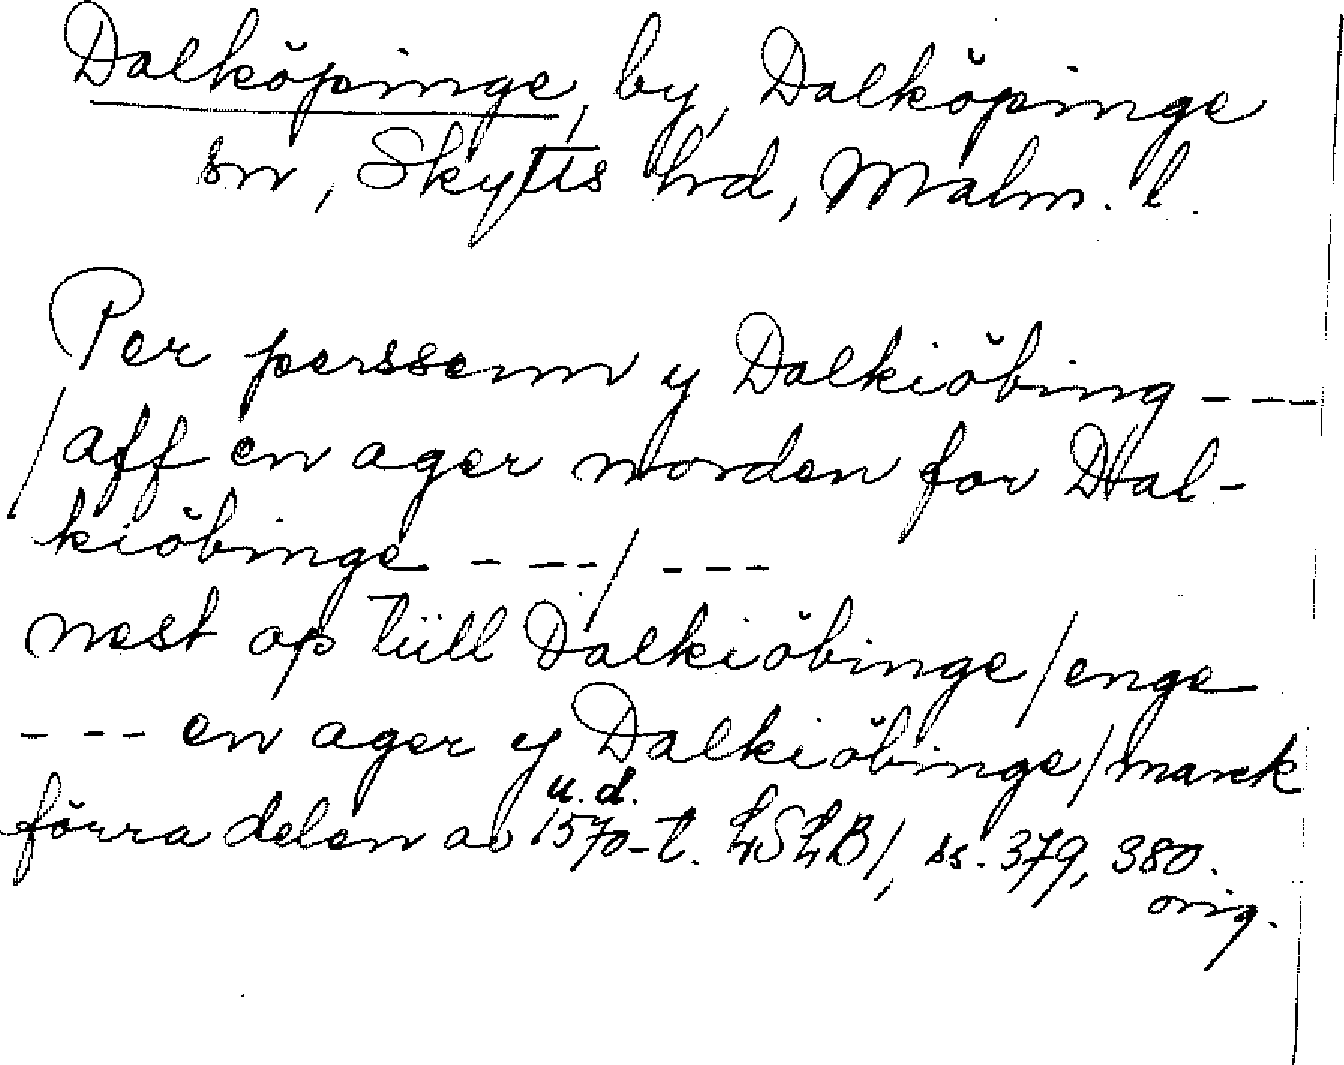 Dalköpinge, by, Dalköpinge
sn, Skytts hrd, Malm. l.
Per perssenn y Dalkiöbing ---
/aff en ager norden for Dal-
kiöbinge - --/ ---
nest op tiill Dalkiöbinge/enge
--- en ager y Dalkiöbinge/marck
u. d.
förra delen av 1570-t. LSLB1, ss. 379, 380.
orig.